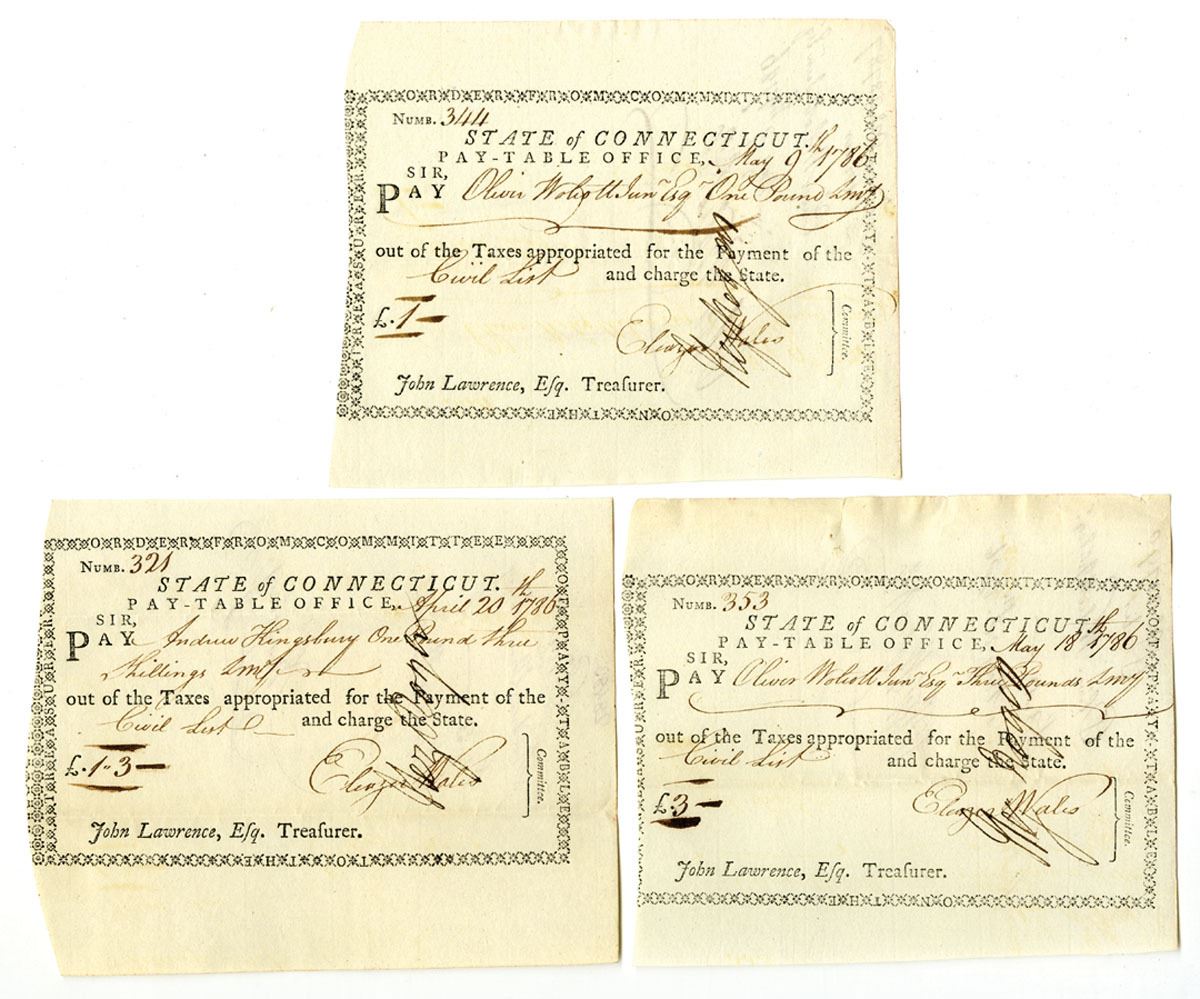 ORDER FROM COMMITTEE
OF PAY-TABLE
ON THE
TREASURER
NUMB. 344
STATE of CONNECTICUT.
PAY-TABLE OFFICE, May 9th 1786
SIR,
PAY Oliver Wolcott Junr Esqr One Pound Lmy
out of the Taxes appropriated for the Payment of the
Civil List and charge the State.
£.1—
Eleazer Wales
Committee.
John Lawrence, Eſq. Treaſurer.
ORDER FROM COMMITTEE
OF PAY-TABLE
TO THE
TREASURER
NUMB. 321
STATE of CONNECTICUT.
PAY-TABLE OFFICE, April 20th 1786
SIR,
PAY Andrew Kingsbury One Pound three
Shillings Lmy
out of the Taxes appropriated for the Payment of the
Civil List and charge the State.
£.1-3—
Eleazer Wales
Committee.
John Lawrence, Eſq. Treaſurer.
ORDER FROM COMMITTEE
OF PAY-TABLE
ON THE
TREASURER
NUMB. 353
STATE of CONNECTICUT.
PAY-TABLE OFFICE, May 18th 1786
SIR,
PAY Oliver Wolcott Junr Esqr Three Pounds Lmy
out of the Taxes appropriated for the Payment of the
Civil List and charge the State.
£.3—
Eleazer Wales
Committee.
John Lawrence, Eſq. Treaſurer.